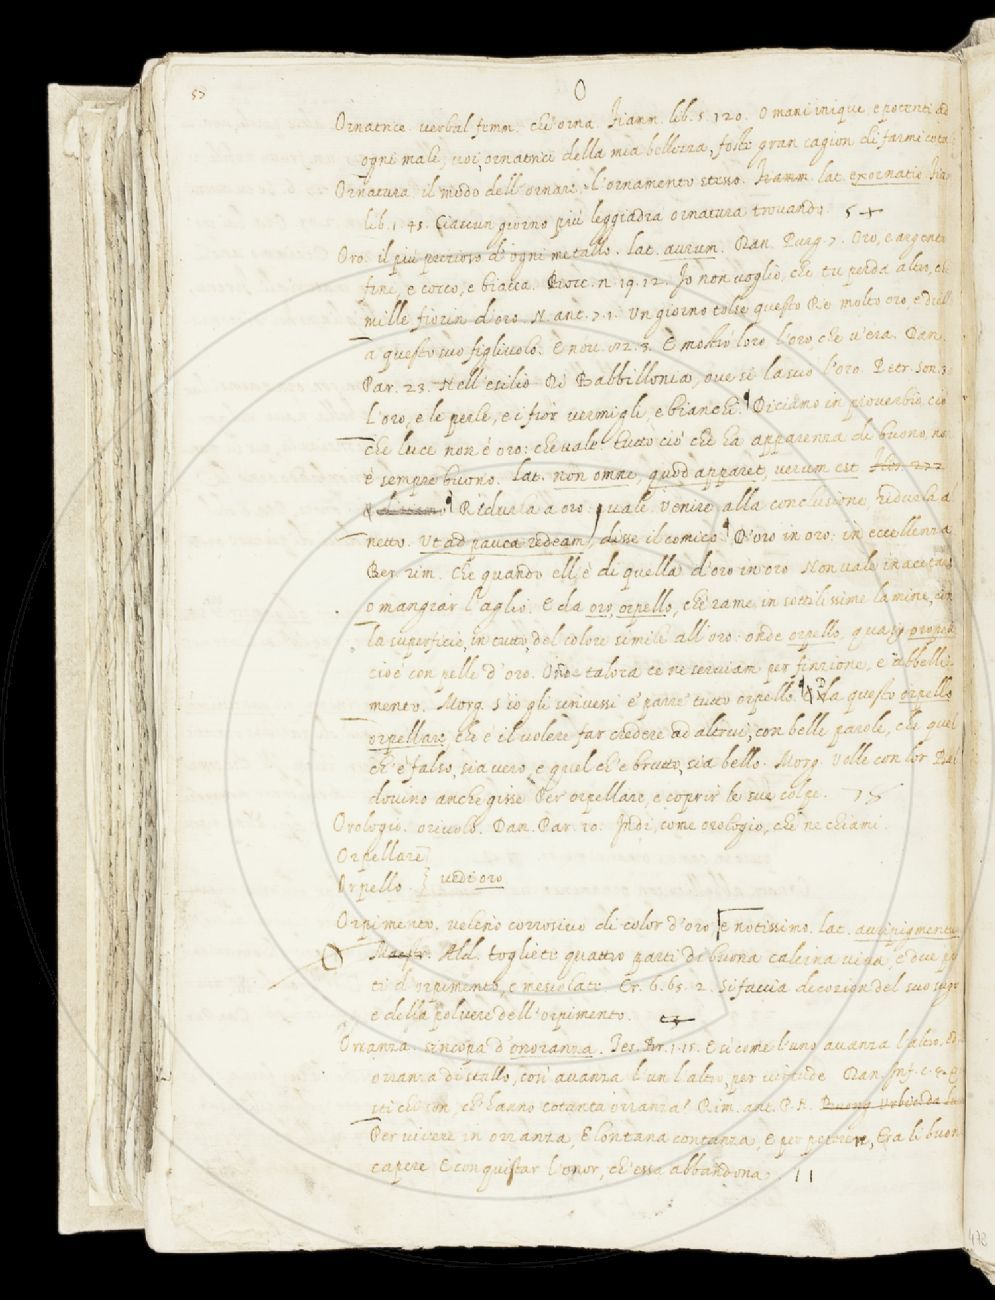 53
O
Ornatrice. verbal femm. che orna. Fiamm. lib. 5. 120. O mani inique, e potenti ad
ogni male, voi, ornatrici della mia bellezza, foste gran cagion di farmi cotal
Ornatura. il modo dell'ornare, e l'ornamento stesso. Fiamm. lat. exornatio. Fiam
lib. 1. 45. Ciascun giorno più leggiadra ornatura trovando. 5+
Oro. il più prezioso d'ogni metallo. lat. aurum. Dan. Purg. 7. Oro, e argento
fine, e cocco, e biacca. Bocc. n. 19. 12. Io non voglio, che tu perda altro, che
mille fiorin d'oro. N. ant. 7. 1. Un giorno tolse questo Re molto oro, e diell
a questo suo figliuolo. E nov. 3. E mostrò loro l'oro che v'era. Dan.
Par. 23. Nell'esilio Di Babbillonia, ove si lasciò l'oro. Petr. Son. 3
L'oro, e le perle, e i fior vermigli, e bianchi. Diciamo in proverbio ciò
che luce non è oro: che vale. tutto ciò che ha apparenza di buono, no
è sempre buono. lat. non omne, quod apparet, verum est
Ridurla a oro: vale. Venire alla conclusione, ridurla al
netto. Ut ad pauca redeam, disse il comico. D'oro in oro: in eccellenza
Ber. rim. Che quando ell'è di quella d'oro in oro Non vale inacetare
o mangiar l'aglio. E da oro, orpello, che rame in sottilissime lamine, con
la superficie, in tutto, del colore simile all'oro: onde orpello, quasi oropelle
cioè con pelle d'oro. Onde talora ce ne serviam per finzione, e abbelli-
mento. Morg. S'io gli scrivessi e' parrè tutto orpello. Da questo orpello
orpellare, che è il volere far credere ad altrui, con belle parole, che quel
ch'è falso, sia vero, e quel ch'è brutto, sia bello. Morg. Volle con lor Bal
dovino anche gisse Per orpellare, e coprir le sue colpe.
Orologio. oriuolo. Dan. Par. 10. Indi, come orologio, che ne chiami.
Orpellare
Orpello. vedi oro
Orpimento. veleno corrosivo di color d'oro, e notissimo. lat. auripigmentu
Maestr. Ald. togliete quattro parti di buona calcina viva, e due par
ti d'orpimento, e mescolate. Cr. 6. 65. 2. Si faccia decozion del suo sugo
e della polvere dell'orpimento.
Orranza. sincopa d'onoranza. Tes. Br. 1. 15. E sì come l'uno avanza l'altro, ed
orranza di stallo, così avanza l'un l'altro, per virtude Dan. Inf. c. 4.
sti chi son, ch'hanno cotanta orranza? Rim. ant. P. N. Buong. Urbic. da Lu
Per vivere in orranza, E lontana contanza, E per potere, Era li buon
capere E conquistar l'onor, ch'essa abbandona. 11
472